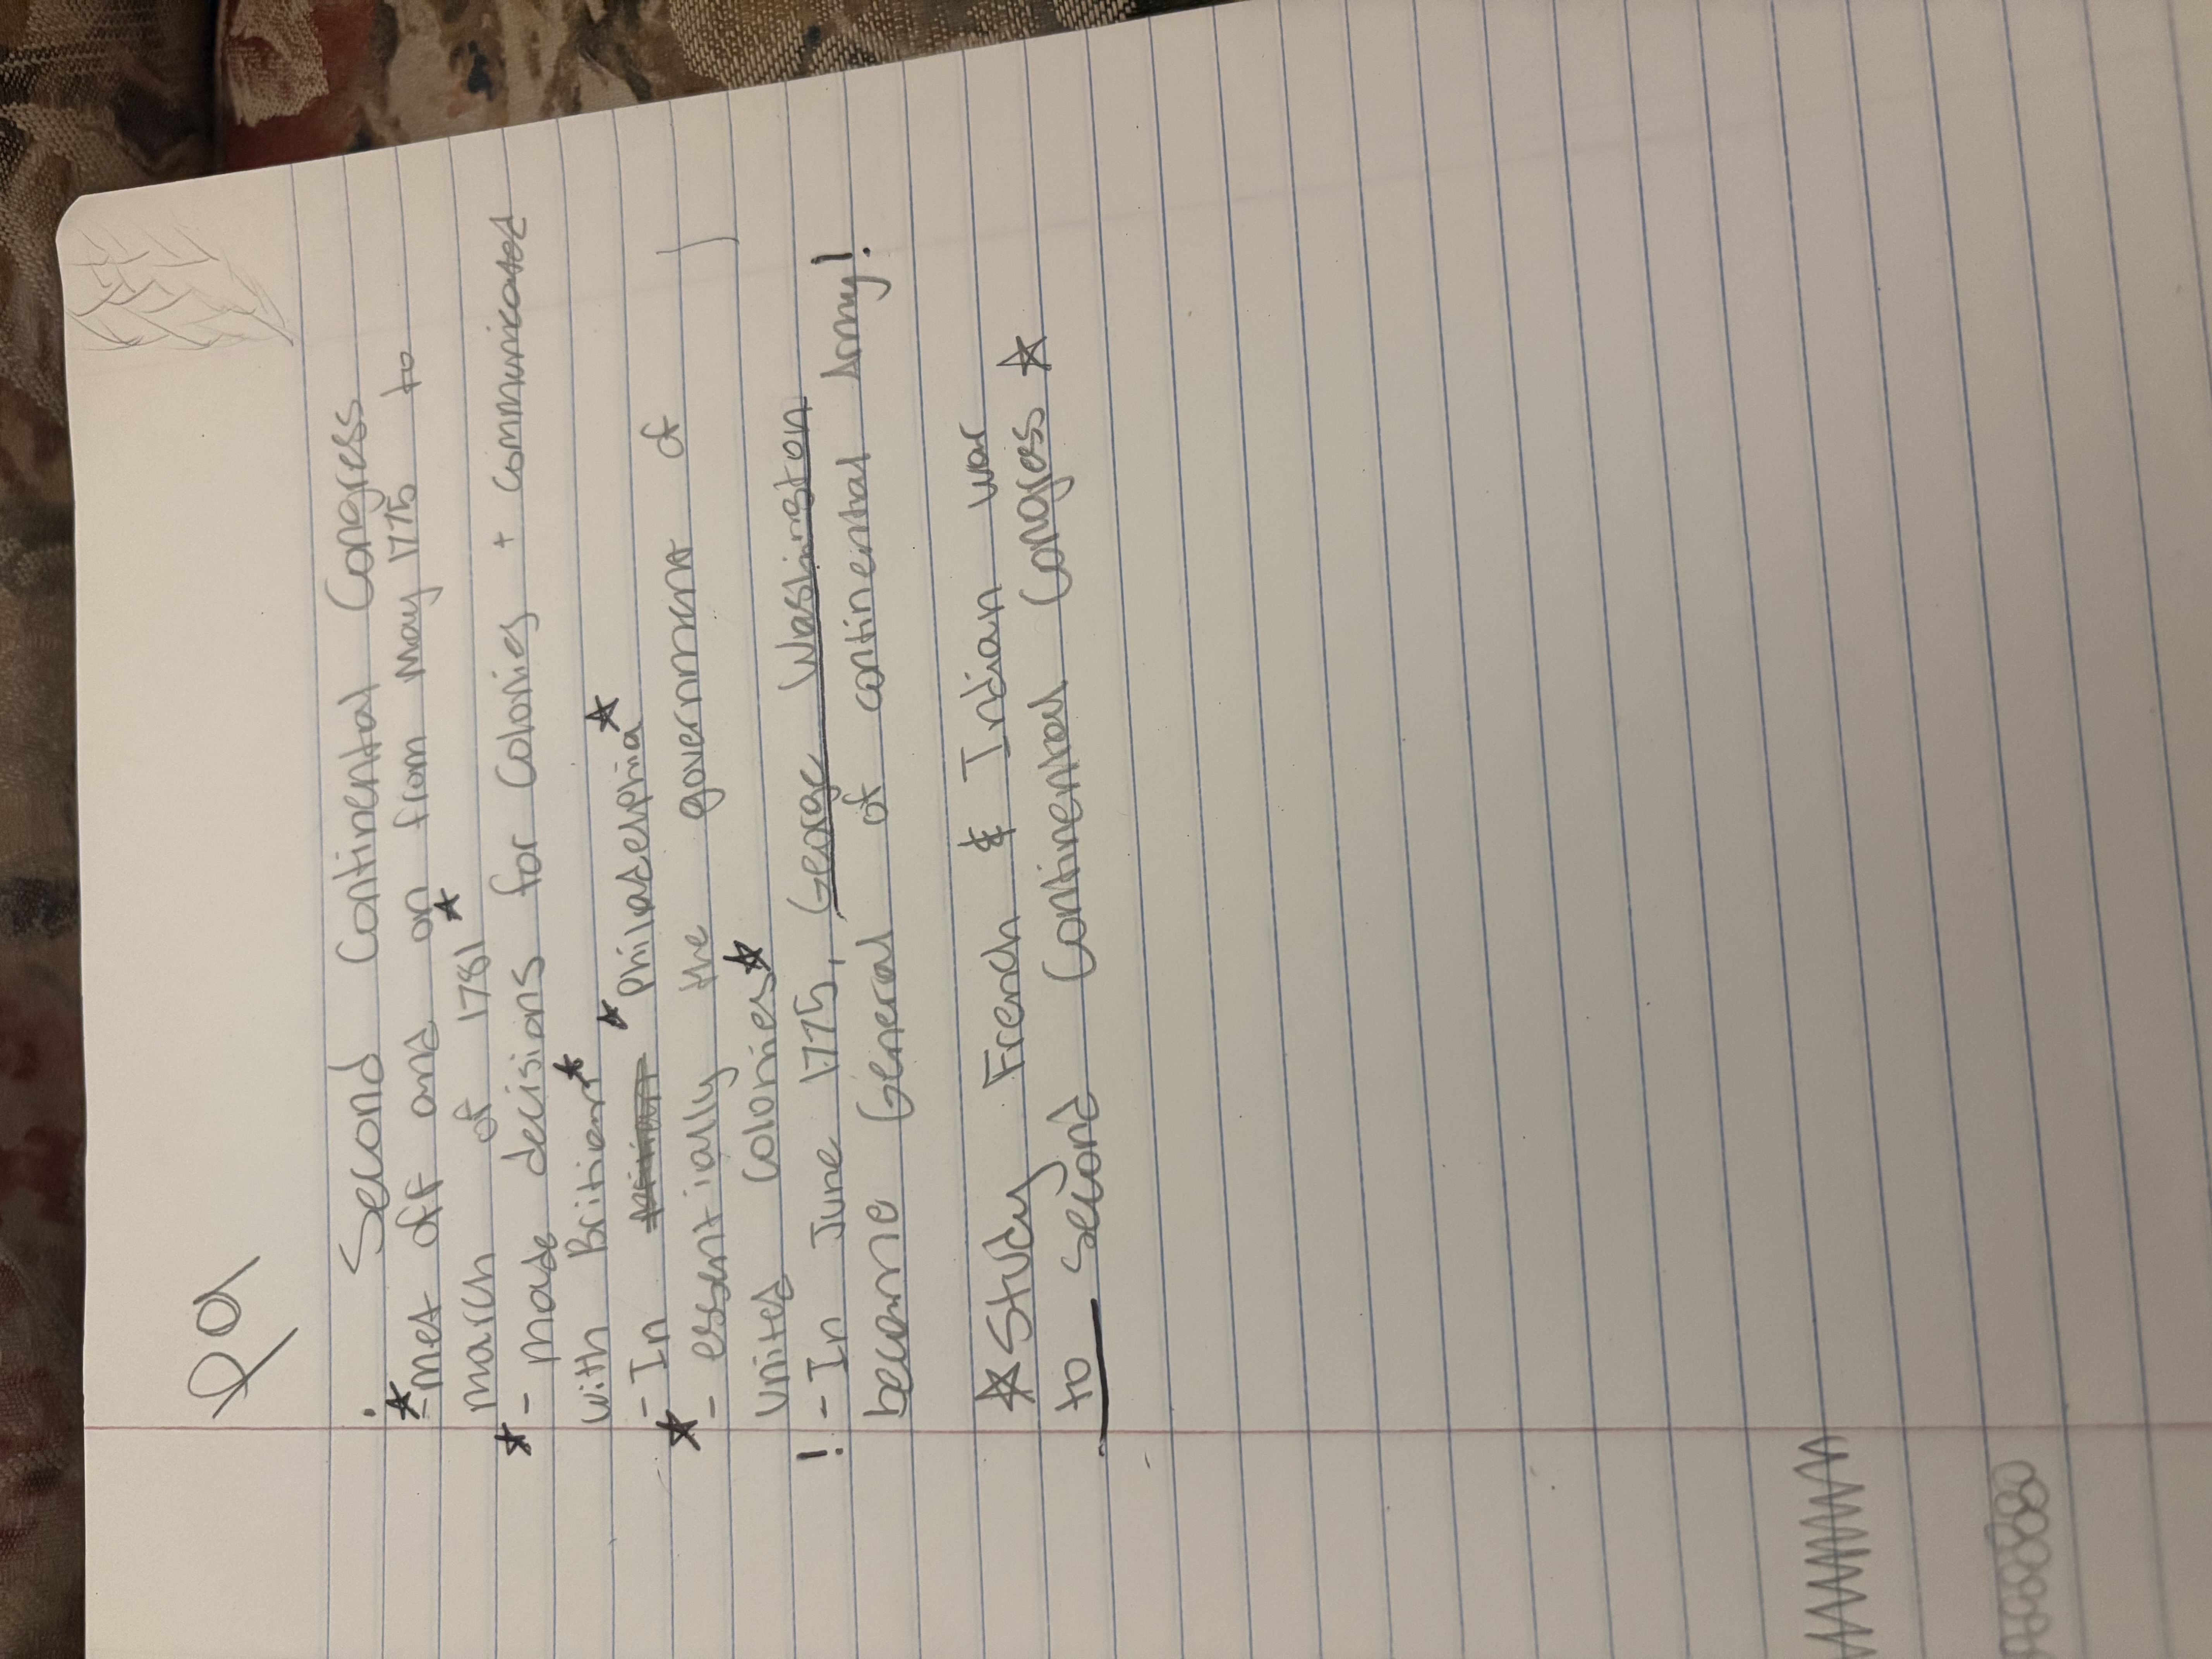 • Second Continental Congress
★ - met off and on from may 1775 to
march of 1781 ★
★ - made decisions for colonies + communicated
with Britian ★
- In ★ Philadelphia ★
★ - essentially the government of
united colonies ★
! - In June 1775, George Washington
become General of continental Army!
☆ Study French & Indian war
to second Continental Congess ☆